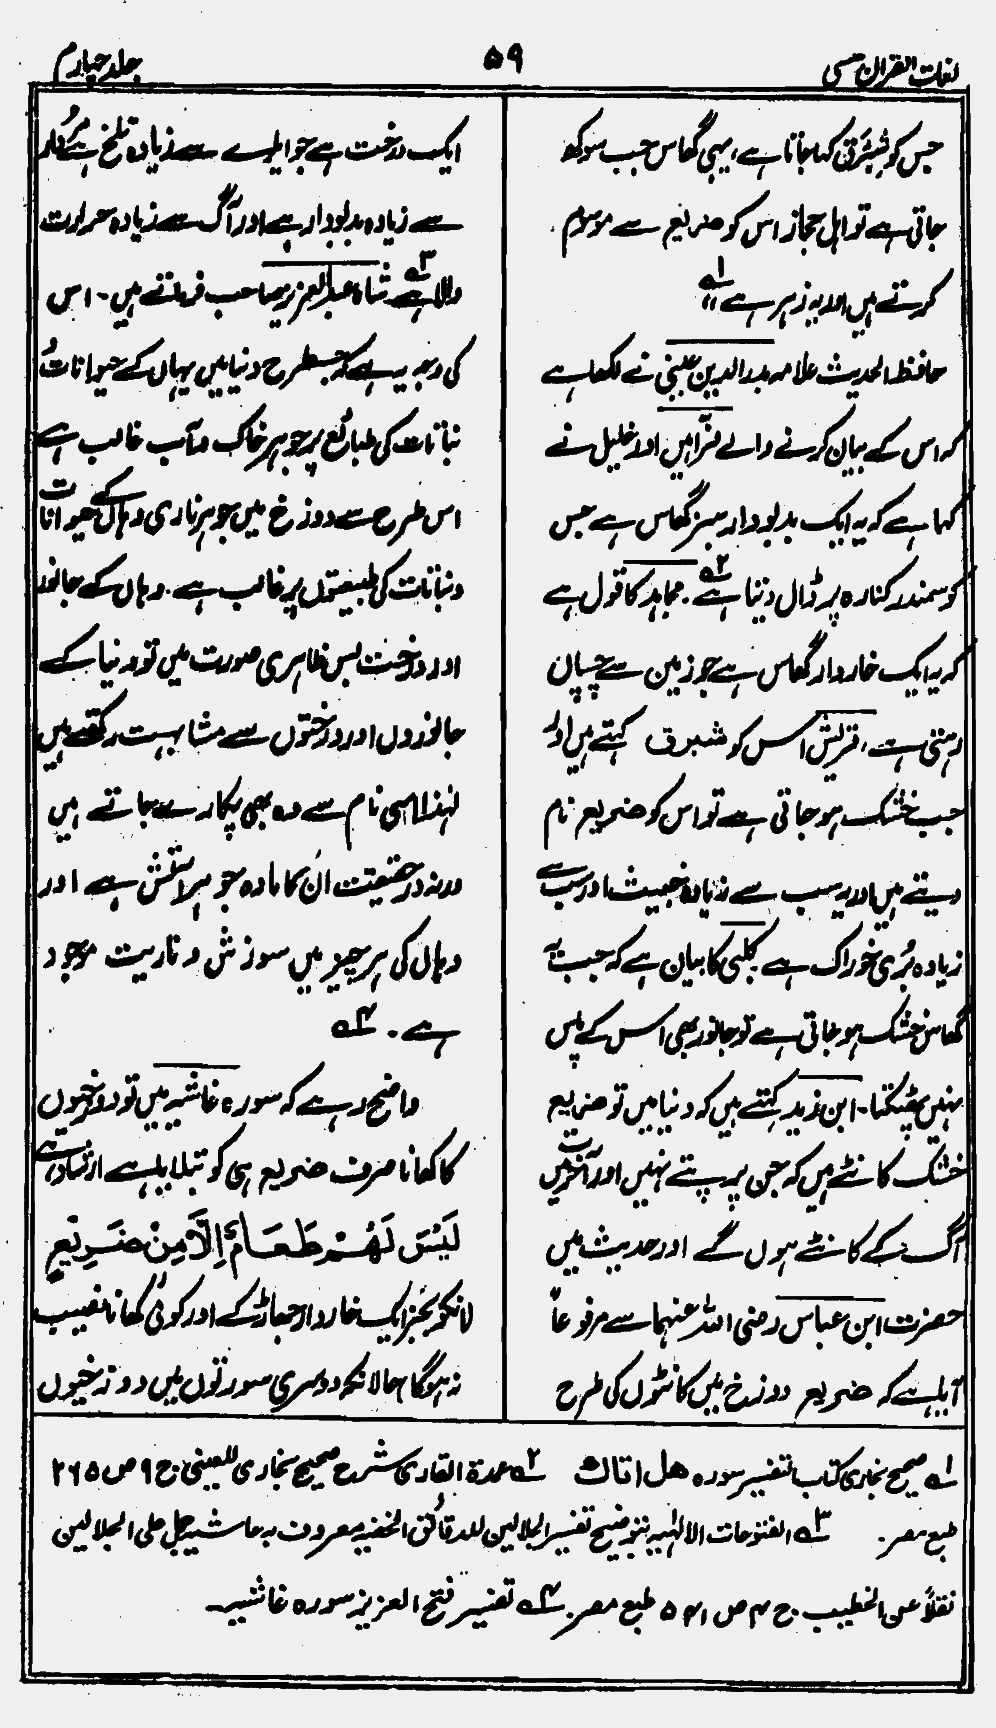 لغات القرآن حصہ
۵۹
جلد چہارم
جس کو شِبْرِق کہا جاتا ہے، یہی گھاس جب سوکھ
جاتی ہے تو اہل حجاز اس کو ضریع سے موسوم
کرتے ہیں اور یہ زہر ہے لہ۱
حافظ الحدیث علامہ بدر الدین عینی نے لکھا ہے
کہ اس کے بیان کرنے والے فرّاء ہیں اور خلیل نے
کہا ہے کہ یہ ایک بدبودار سبز گھاس ہے جس
کو سمندر کنارہ پر ڈال دیتا ہے لہ۲۔ مجاہد کا قول ہے
کہ یہ ایک خاردار گھاس ہے جو زمین سے چسپاں
رہتی ہے، قریش اس کو شبرق کہتے ہیں اور
جب خشک ہو جاتی ہے تو اس کو ضریع نام
دیتے ہیں اور یہ سب سے زیادہ خبیث اور سب سے
زیادہ بُری خوراک ہے کلبی کا بیان ہے کہ جب یہ
گھاس خشک ہو جاتی ہے تو جانور بھی اس کے پاس
نہیں پھٹکتا۔ ابن زید کہتے ہیں کہ دنیا میں تو ضریع
خشک کانٹے ہیں کہ جن پر پتے نہیں اور آخرت میں
آگ کے کانٹے ہوں گے اور حدیث میں
حضرت ابن عباس رضی اللہ عنہما سے مرفوعاً
آیا ہے کہ ضریع دوزخ میں کانٹوں کی طرح
ایک درخت ہے جو ایلوے سے زیادہ تلخ ہے مُردار
سے زیادہ بدبودار ہے اور آگ سے زیادہ حرارت
والا ہے لہ۳ شاہ عبد العزیز صاحب فرماتے ہیں۔ اس
کی وجہ یہ ہے کہ جسطرح دنیا میں یہاں کے حیوانات و
نباتات کی طبائع پر جوہر خاک و آب غالب ہے
اس طرح سے دوزخ میں جوہر ناری وہاں کے حیوانات
و نباتات کی طبیعتوں پر غالب ہے۔ وہاں کے جانور
اور درخت بس ظاہری صورت میں تو دنیا کے
جانوروں اور درختوں سے مشابہت رکھتے ہیں
لہٰذا اسی نام سے وہ بھی پکارے جاتے ہیں
ورنہ در حقیقت ان کا مادہ جوہر آتش ہے اور
وہاں کی ہر چیز میں سوزش و ناریت موجود
ہے۔ لہ۴
واضح رہے کہ سورہ غاشیہ میں تو دوزخیوں
کا کھانا صرف ضریع ہی کو بتلایا ہے ارشاد ہے
لَيْسَ لَهُمْ طَعَامٌ اِلَّا مِنْ ضَرِيْعٍ
(انکو بجز ایک خاردار جھاڑ کے اور کوئی کھانا نصیب
نہ ہوگا) حالانکہ دوسری سورتوں میں دوزخیوں
لہ۱ صحیح بخاری کتاب التفسیر سورہ ھل اتاک لہ۲ عمدۃ القاری شرح صحیح بخاری للعینی ج ۹ ص ۲۶۵
طبع مصر۔ لہ۳ الفتوحات الالٰہیہ بتوضیح تفسیر الجلالین للدقائق الخفیہ معروف بہ حاشیہ جمل علی الجلالین
نقلاً عن الخطیب ج ۴ ص ۵۲۱ طبع مصر۔ لہ۴ تفسیر فتح العزیز سورہ غاشیہ۔